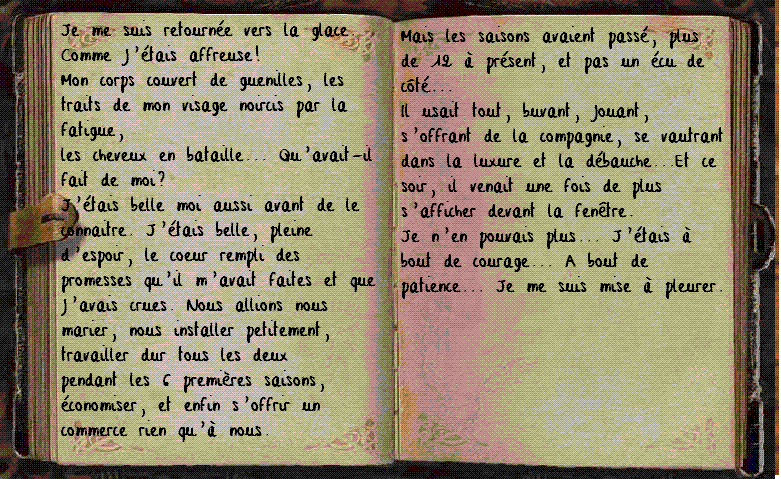 Je me suis retournée vers la glace.
Comme j'étais affreuse!
Mon corps couvert de guenilles, les
traits de mon visage noircis par la
fatigue,
les cheveux en bataille... Qu'avait-il
fait de moi?
J'étais belle moi aussi avant de le
connaitre. J'étais belle, pleine
d'espoir, le coeur rempli des
promesses qu'il m'avait faites et que
j'avais crues. Nous allions nous
marier, nous installer petitement,
travailler dur tous les deux
pendant les 6 premières saisons,
économiser, et enfin s'offrir un
commerce rien qu'à nous.
Mais les saisons avaient passé, plus
de 12 à présent, et pas un écu de
côté...
Il usait tout, buvant, jouant,
s'offrant de la compagnie, se vautrant
dans la luxure et la débauche...Et ce
soir, il venait une fois de plus
s'afficher devant la fenêtre.
Je n'en pouvais plus... J'étais à
bout de courage... A bout de
patience... Je me suis mise à pleurer.